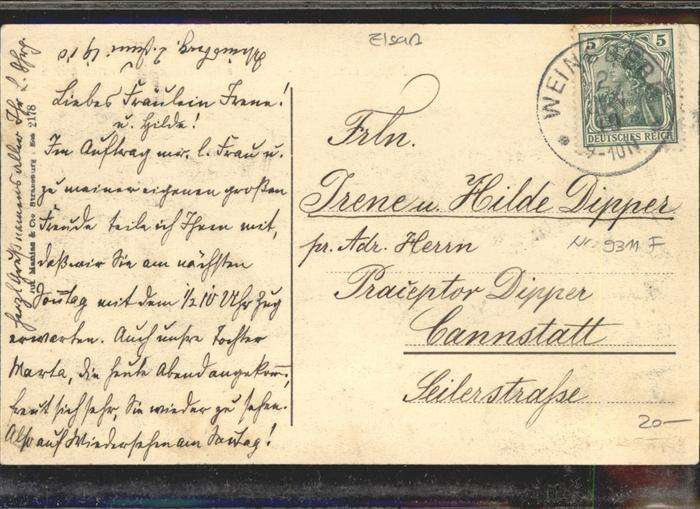 Elsaß
Liebes Fräulein Irene!
u. Hilde!
Im Auftrag mr. l. Frau u.
zu meiner eigenen großen
Freude teile ich Ihnen mit,
daß wir Sie am nächsten
Sonntag mit dem 1/2 10 Uhr Zug
erwarten. Auch unsre Tochter
Marta, die heute Abend angekom̄,
freut sich sehr, Sie wieder zu sehen.
Also auf Wiedersehen am Sonntag!
Herzl. Gruß namens aller Ihr
Els 2178
5 5
DEUTSCHES REICH
WEINSBERG
Frln.
Irene u. Hilde Dipper
pr. Adr. Herrn
Nr 9311 F
Praeceptor Dipper
Cannstatt
Seilerstraße
20-